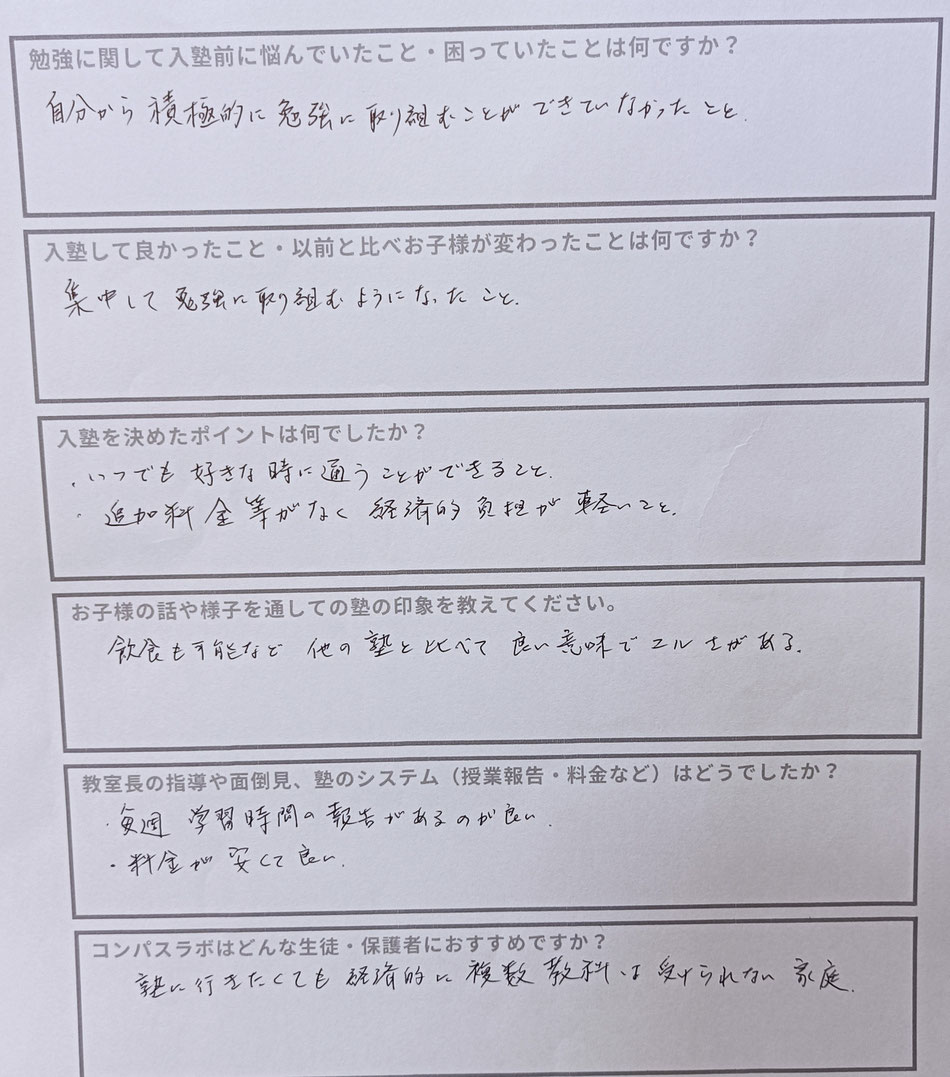 勉強に関して入塾前に悩んでいたこと・困っていたことは何ですか？
自分から積極的に勉強に取り組むことができていなかったこと.
入塾して良かったこと・以前と比べお子様が変わったことは何ですか？
集中して勉強に取り組むようになったこと.
入塾を決めたポイントは何でしたか？
・いつでも好きな時に通うことができること.
・追加料金等がなく経済的負担が軽いこと.
お子様の話や様子を通しての塾の印象を教えてください。
飲食も可能など他の塾と比べて良い意味でユルさがある.
教室長の指導や面倒見、塾のシステム（授業報告・料金など）はどうでしたか？
・毎週学習時間の報告があるのが良い.
・料金が安くて良い.
コンパスラボはどんな生徒・保護者におすすめですか？
塾に行きたくても経済的に複数教科は受けられない家庭.